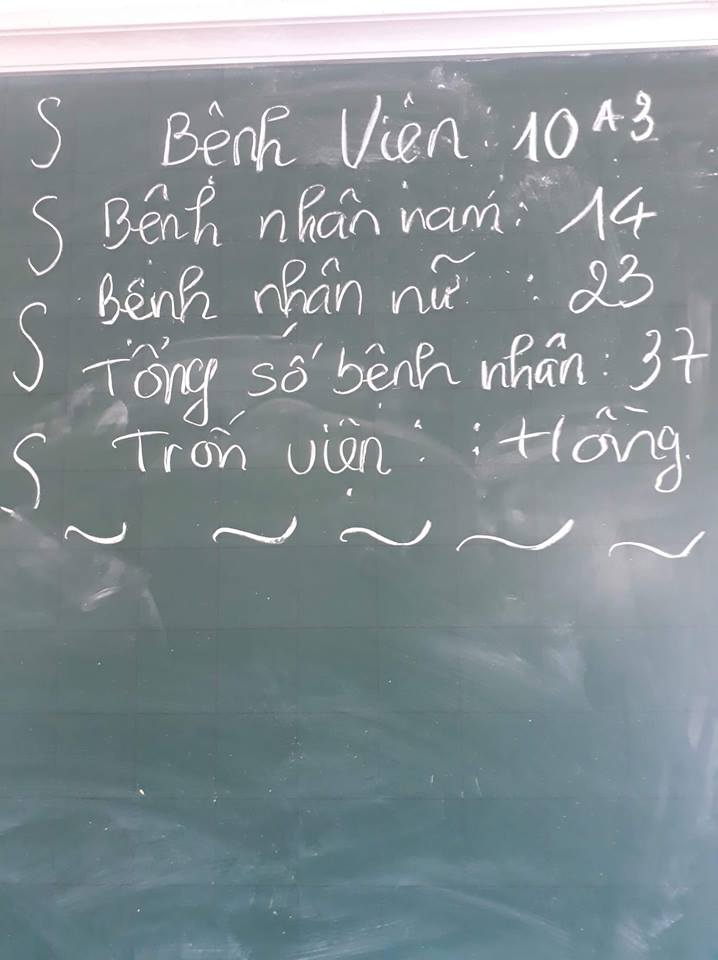 Bệnh Viện : 10A3
Bệnh nhân nam : 14
Bệnh nhân nữ : 23
Tổng số bệnh nhân : 37
Trốn viện : Hồng